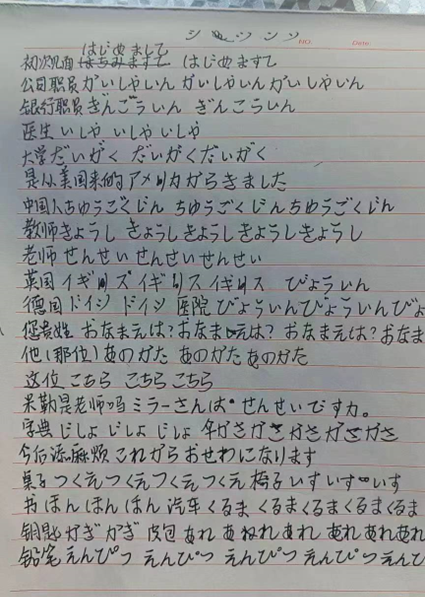 シ ツ ン ソ
NO. Date:
はじめまして
初次见面 はじめますて
公司职员 がいしゃいん がいしゃいん がいしゃいん
银行职员 ぎんごういん ぎんこういん
医生 いしゃ いしゃ いしゃ
大学 だいがく だいがく だいがく
是从美国来的 アメリカからきました
中国人 ちゅうごくじん ちゅうごくじん ちゅうごくじん
教师 きょうし きょうし きょうし きょうし きょうし
老师 せんせい せんせい せんせい
英国 イギリズ イギリス イギリス びょういん
德国 ドイツ ドイツ 医院 びょういん びょういん びょ
您贵姓 おなまえは? おなまえは? おなまえは? おなま
他(那位) あのがた あのかた あのかた
这位 こちら こちら こちら
米勒是老师吗 ミラーさんは せんせいですか。
字典 じしょ じしょ じしょ 伞 かさ かさ かさ かさ かさ
今后添麻烦 これからおせわになります
桌子 つくえ つくえ つくえ つくえ 椅子 いす いす いす
书 ほん ほん ほん 汽车 くるま くるま くるま くるま くるま
钥匙 かぎ かぎ 皮包 あれ あれ あれ あれ あれ
铅笔 えんぴつ えんぴつ えんぴつ えんぴつ えんぴ